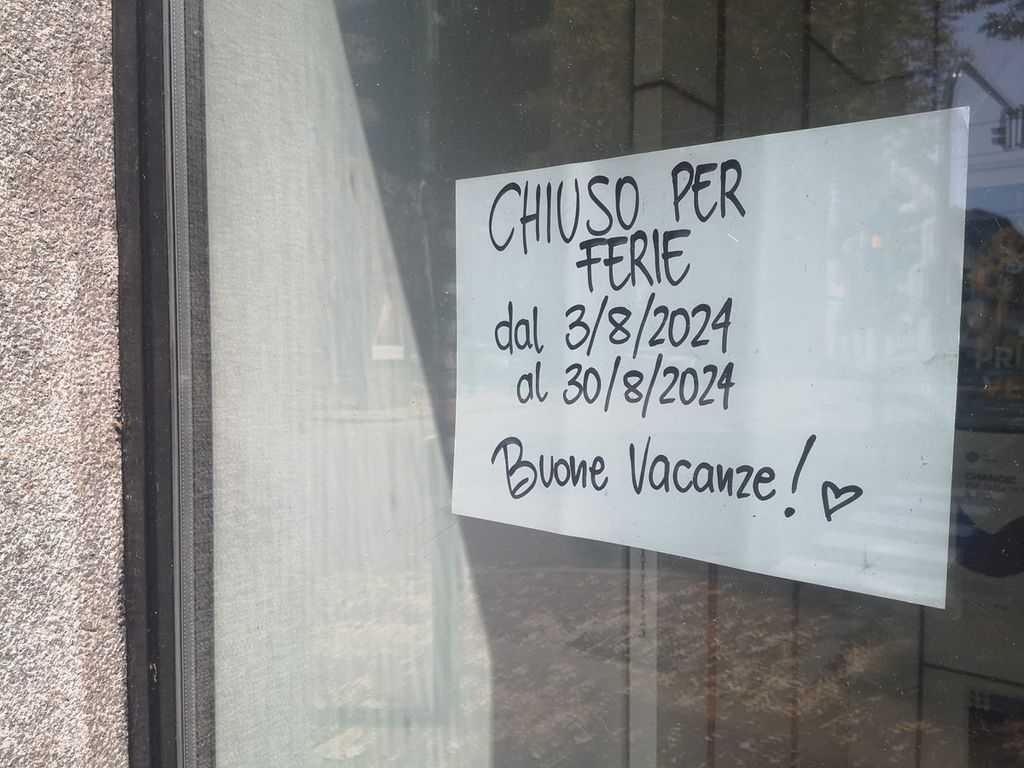 CHIUSO PER
FERIE
dal 3/8/2024
al 30/8/2024
Buone Vacanze!